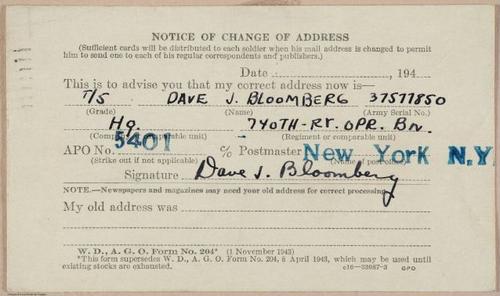 NOTICE OF CHANGE OF ADDRESS
(Sufficient cards will be distributed to each soldier when his mail address is changed to permit
him to send one to each of his regular correspondents and publishers.)
Date , 194
This is to advise you that my correct address now is—
T/5 DAVE J. BLOOMBERG 37577850
(Grade) (Name) (Army Serial No.)
Hq. 740TH-RY. OPR. BN.
(Company or comparable unit) (Regiment or comparable unit)
APO No. 5401 c/o Postmaster New York N.Y.
(Strike out if not applicable) (Name of post office)
Signature Dave J. Bloomberg
NOTE.—Newspapers and magazines may need your old address for correct processing.
My old address was
W. D., A. G. O. Form No. 204* (1 November 1943)
*This form supersedes W. D., A. G. O. Form No. 204, 8 April 1943, which may be used until
existing stocks are exhausted. c16—33987-3 GPO